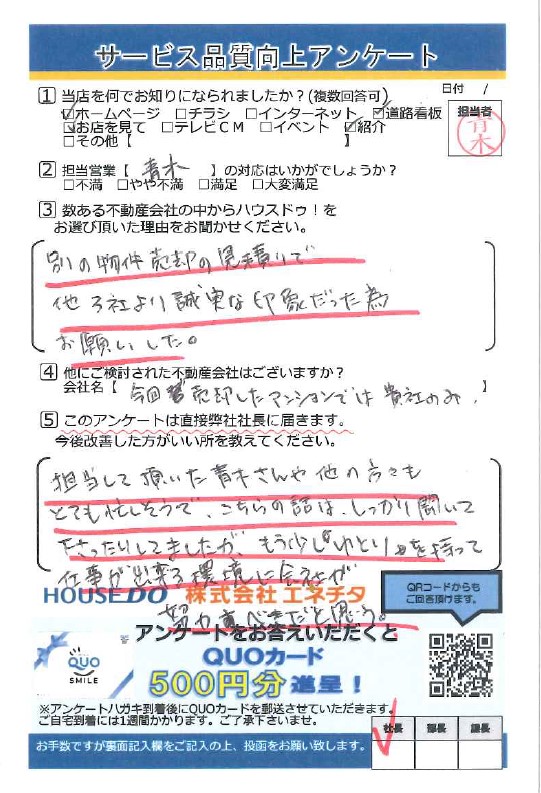 サービス品質向上アンケート
日付 /
1 当店を何でお知りになられましたか？(複数回答可)
☑ホームページ □チラシ □インターネット ☑道路看板
☑お店を見て □テレビCM □イベント ☑紹介
□その他【 】
担当者
青木
2 担当営業【 青木 】の対応はいかがでしょうか？
□不満 □やや不満 □満足 □大変満足
3 数ある不動産会社の中からハウスドゥ！を
お選び頂いた理由をお聞かせください。
別の物件売却の見積りで
他3社より誠実な印象だった為
お願いした。
4 他にご検討された不動産会社はございますか？
会社名【 今回 売却したマンションでは貴社のみ. 】
5 このアンケートは直接弊社社長に届きます。
今後改善した方がいい所を教えてください。
担当して頂いた青木さんや他の方々も
とても忙しそうで、こちらの話は、しっかり聞いて
ださったりしてましたが、もう少し"ゆとり"を持って
仕事が出来る環境に会社が
努力すべきだと思う。
HOUSEDO 株式会社 エネチタ
QRコードからも
ご回答頂けます。
アンケートをお答えいただくと
QUOカード
500円分進呈！
QUO
SMILE
※アンケートハガキ到着後にQUOカードを郵送させていただきます。
ご自宅到着には1週間かかります。ご了承下さいませ。
お手数ですが裏面記入欄をご記入の上、投函をお願い致します。
社長 部長 課長